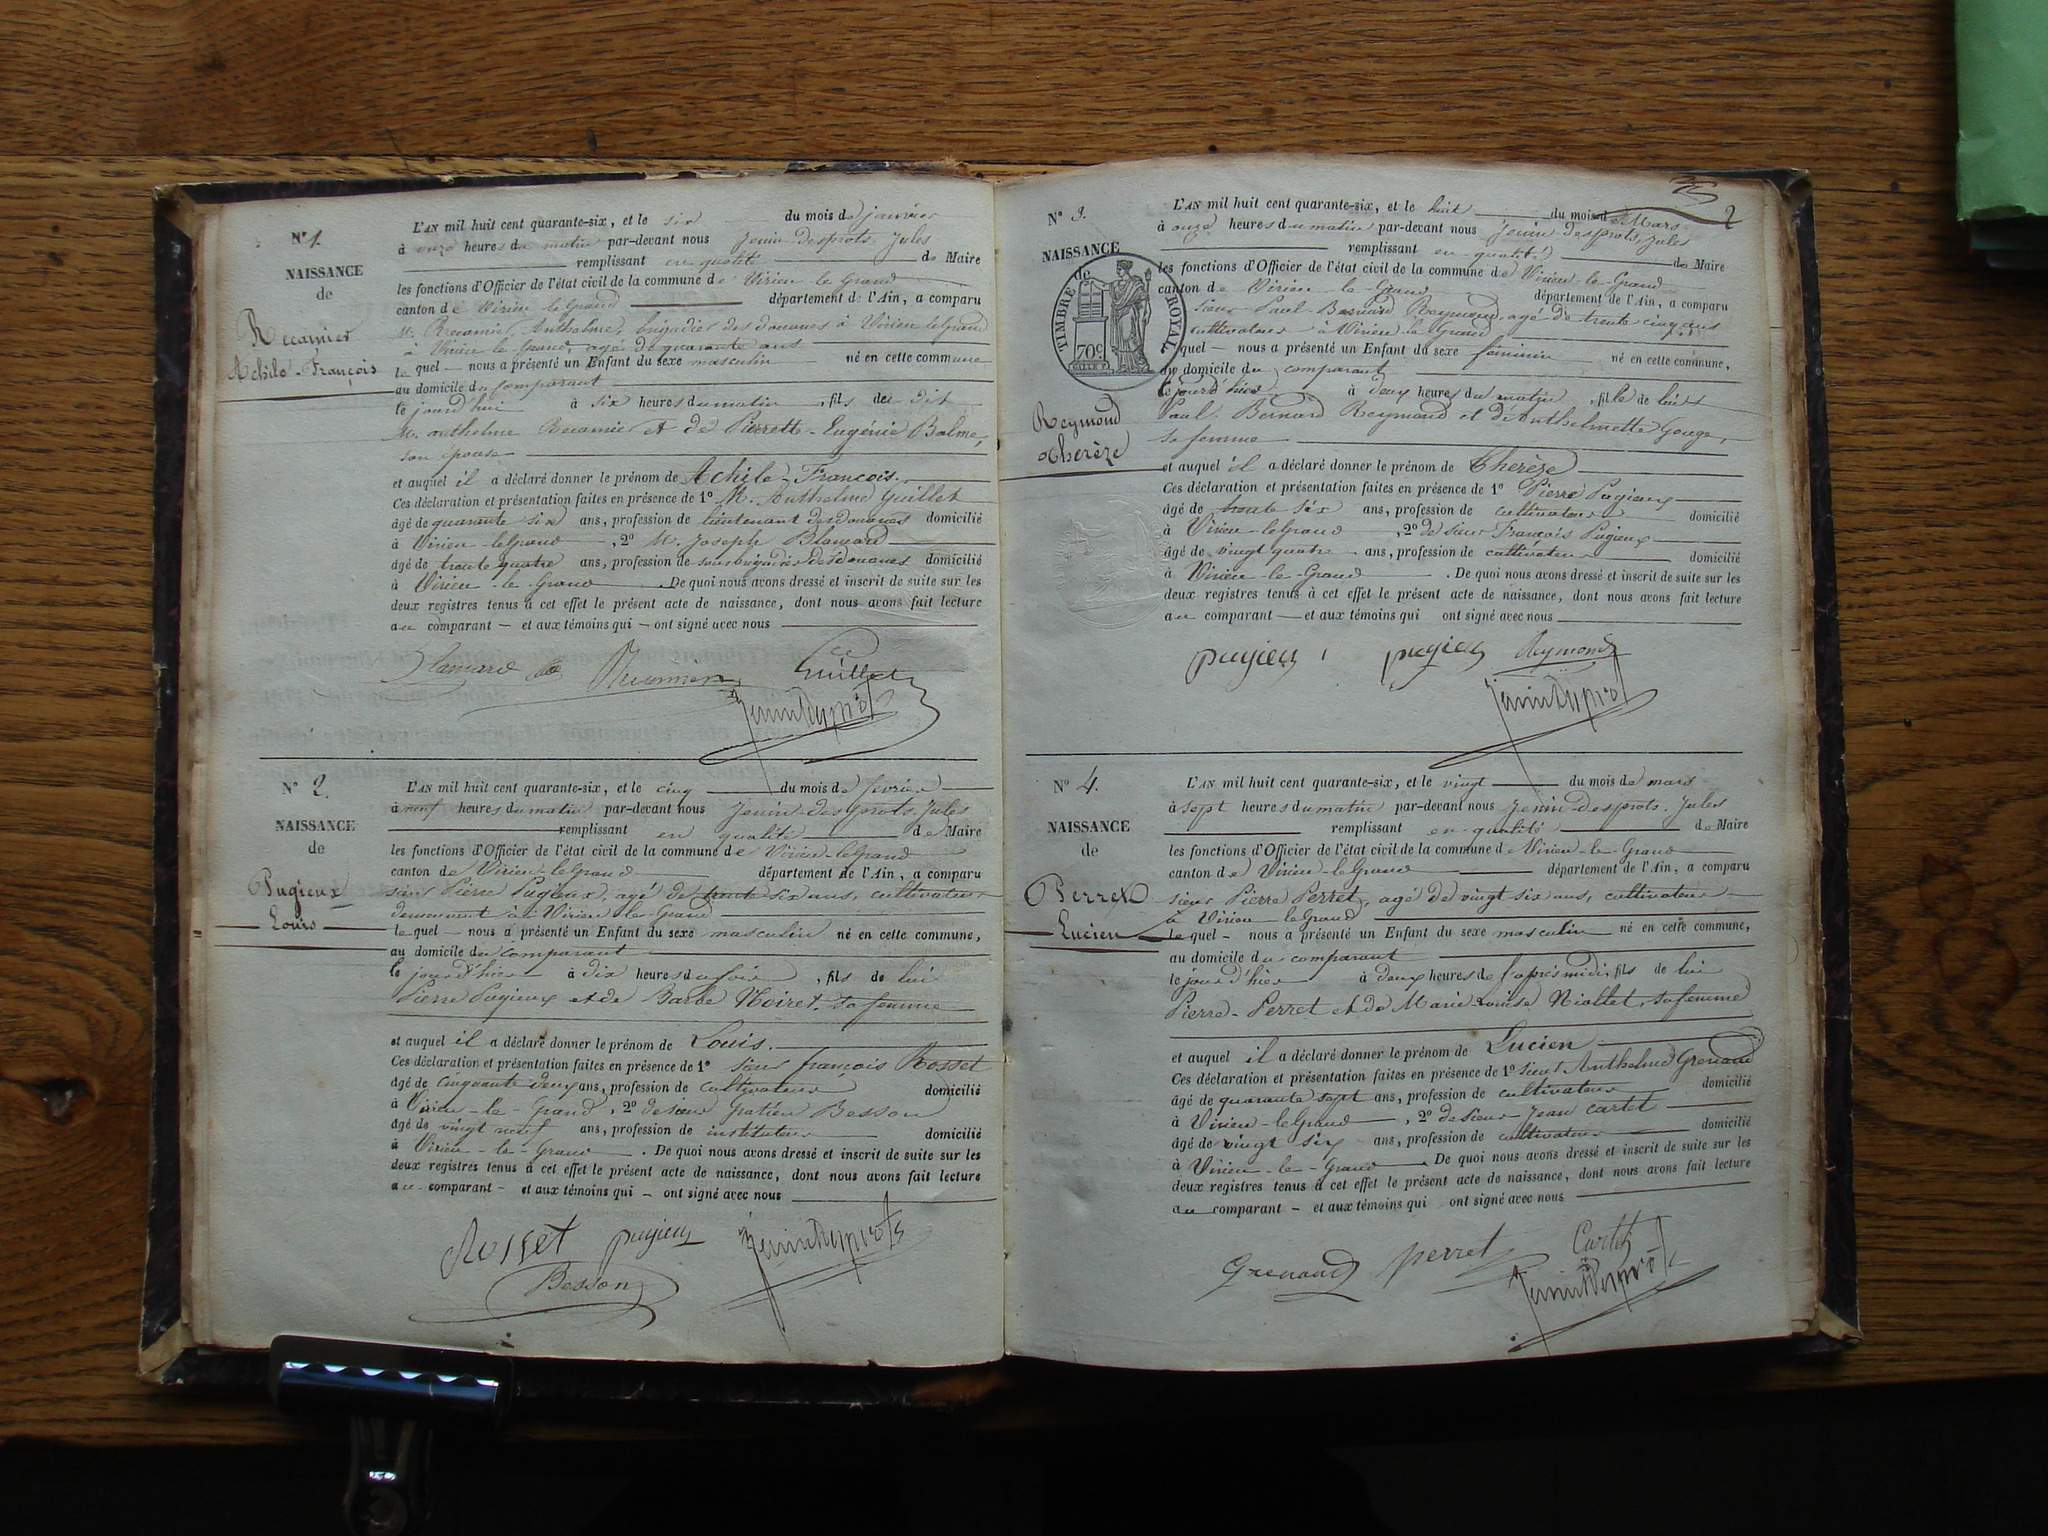 N° 1.
NAISSANCE
de
Recamier
Achile-François
L'AN mil huit cent quarante-six, et le six du mois de janvier
à onze heures du matin par-devant nous Jenin-Desprots, Jules
remplissant en qualité de Maire
les fonctions d'Officier de l'état civil de la commune de Virieu le Grand
canton de Virieu le Grand département de l'Ain, a comparu
M. Recamier, Anthelme, brigadier des douanes à Virieu le Grand
à Virieu le Grand, agé de quarante ans
le quel — nous a présenté un Enfant du sexe masculin né en cette commune
au domicile du comparant
le jourd'hui à six heures du matin, fils de
M. anthelme Recamier et de Pierrette-Eugénie Balme,
son épouse
et auquel il a déclaré donner le prénom de Achile-François.
Ces déclaration et présentation faites en présence de 1° M. Anthelme Guillet
âgé de quarante six ans, profession de lieutenant des douanes domicilié
à Virieu-le Grand, 2° M. Joseph Blamard
âgé de trente quatre ans, profession de sous brigadier des douanes domicilié
à Virieu-le-Grand. De quoi nous avons dressé et inscrit de suite sur les
deux registres tenus à cet effet le présent acte de naissance, dont nous avons fait lecture
au comparant — et aux témoins qui — ont signé avec nous
Guillet
Jenin Desprots
N° 2.
NAISSANCE
de
Pugieux
Louis
L'AN mil huit cent quarante-six, et le cinq du mois de fevrier
à neuf heures du matin par-devant nous Jenin-Desprots, Jules
remplissant en qualité de Maire
les fonctions d'Officier de l'état civil de la commune de Virieu-le Grand
canton de Virieu-le Grand département de l'Ain, a comparu
sieur Pierre Pugieux, agé de trente six ans, cultivateur
demeurant à Virieu-le-Grand
le quel — nous a présenté un Enfant du sexe masculin né en cette commune,
au domicile du comparant
le jour d'hier à dix heures du soir, fils de lui
Pierre Pugieux et de Barbe Noiret, sa femme
et auquel il a déclaré donner le prénom de Louis.
Ces déclaration et présentation faites en présence de 1° sieur françois Rosset
âgé de cinquante deux ans, profession de cultivateur domicilié
à Virieu-le-Grand, 2° de sieur Gratien Besson
âgé de vingt neuf ans, profession de instituteur domicilié
à Virieu-le-Grand. De quoi nous avons dressé et inscrit de suite sur les
deux registres tenus à cet effet le présent acte de naissance, dont nous avons fait lecture
au comparant — et aux témoins qui — ont signé avec nous
Rosset pugieux Jenin Desprots
Besson
2
N° 3.
NAISSANCE
de
TIMBRE ROYAL
70c
Reymond
Therèze
L'AN mil huit cent quarante-six, et le huit du mois de Mars
à onze heures du matin par-devant nous Jenin-Desprots, Jules
remplissant en qualité de Maire
les fonctions d'Officier de l'état civil de la commune de Virieu-le-Grand
canton de Virieu-le-Grand département de l'Ain, a comparu
sieur Paul-Bernard Reymond, agé de trente cinq ans
cultivateur à Virieu-le Grand
quel — nous a présenté un Enfant du sexe féminin né en cette commune,
du domicile du comparant
le jourd'hier à deux heures du matin, fille de lui
Paul-Bernard Reymond et de Anthelmette Gouge,
sa femme
et auquel il a déclaré donner le prénom de Therèze
Ces déclaration et présentation faites en présence de 1° Pierre Pugieux
âgé de trente six ans, profession de cultivateur domicilié
à Virieu-le Grand, 2° de sieur François Pugieux
âgé de vingt quatre ans, profession de cultivateur domicilié
à Virieu-le-Grand. De quoi nous avons dressé et inscrit de suite sur les
deux registres tenus à cet effet le présent acte de naissance, dont nous avons fait lecture
au comparant — et aux témoins qui ont signé avec nous
pugieux pugieux Reymond
Jenin Desprots
N° 4.
NAISSANCE
de
Perret
Lucien
L'AN mil huit cent quarante-six, et le vingt du mois de mars
à sept heures du matin par-devant nous Jenin-Desprots, Jules
remplissant en qualité de Maire
les fonctions d'Officier de l'état civil de la commune de Virieu-le-Grand
canton de Virieu-le Grand département de l'Ain, a comparu
sieur Pierre Perret, agé de vingt six ans, cultivateur
à Virieu-le Grand
le quel — nous a présenté un Enfant du sexe masculin né en cette commune,
au domicile du comparant
le jour d'hier à deux heures de l'après midi, fils de lui
Pierre-Perret et de Marie-Louise Niollet, sa femme
et auquel il a déclaré donner le prénom de Lucien
Ces déclaration et présentation faites en présence de 1° sieur Anthelme Grenaud
âgé de quarante sept ans, profession de cultivateur domicilié
à Virieu-le Grand, 2° de sieur Jean Cartet
âgé de vingt six ans, profession de cultivateur domicilié
à Virieu-le-Grand. De quoi nous avons dressé et inscrit de suite sur les
deux registres tenus à cet effet le présent acte de naissance, dont nous avons fait lecture
au comparant — et aux témoins qui ont signé avec nous
Grenaud perret Cartet
Jenin Desprots